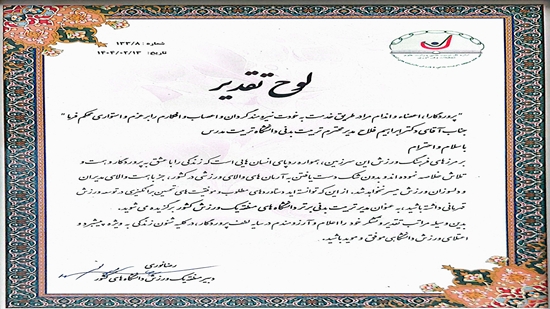 شماره : ۱۳۳/۸
تاریخ: ۱۴۰۲/۰۲/۱۳
لوح تقدیر
"پروردگارا، اعضاء و اندام مرا در طریق خدمت به خودت نیرومند گردان و احساس و افکارم را بر عزم و استواری محکم فرما"
جناب آقای دکتر ابراهیم فلاح مدیر محترم تربیت بدنی دانشگاه تربیت مدرس
با سلام و احترام
بر مرزهای فرهنگ ورزش این سرزمین، همواره رد پای انسان هایی است که زندگی را با عشق به پروردگار و همت و
تلاش خلاصه نموده اند و بدون شک دست یافتن به آرمان های والای ورزشی در کشور، جز با همت والای مدیران
و دلسوزان ورزش میسر نخواهد شد. از این که توانسته اید دستاوردهای مطلوب و موفقیت های تحسین برانگیزی در توسعه ورزش
قهرمانی داشته باشید، به عنوان مدیر تربیت بدنی برتر دانشگاه های منطقه یک ورزش کشور برگزیده می شوید.
بدین وسیله مراتب تقدیر و تشکر خود را اعلام و آرزومندم در سایه لطف پروردگار، در کلیه شئون زندگی به ویژه پیشبرد و
اعتلای ورزش دانشگاهی موفق و موید باشید.
رضا نوری
دبیر منطقه یک ورزش دانشگاه های کشور